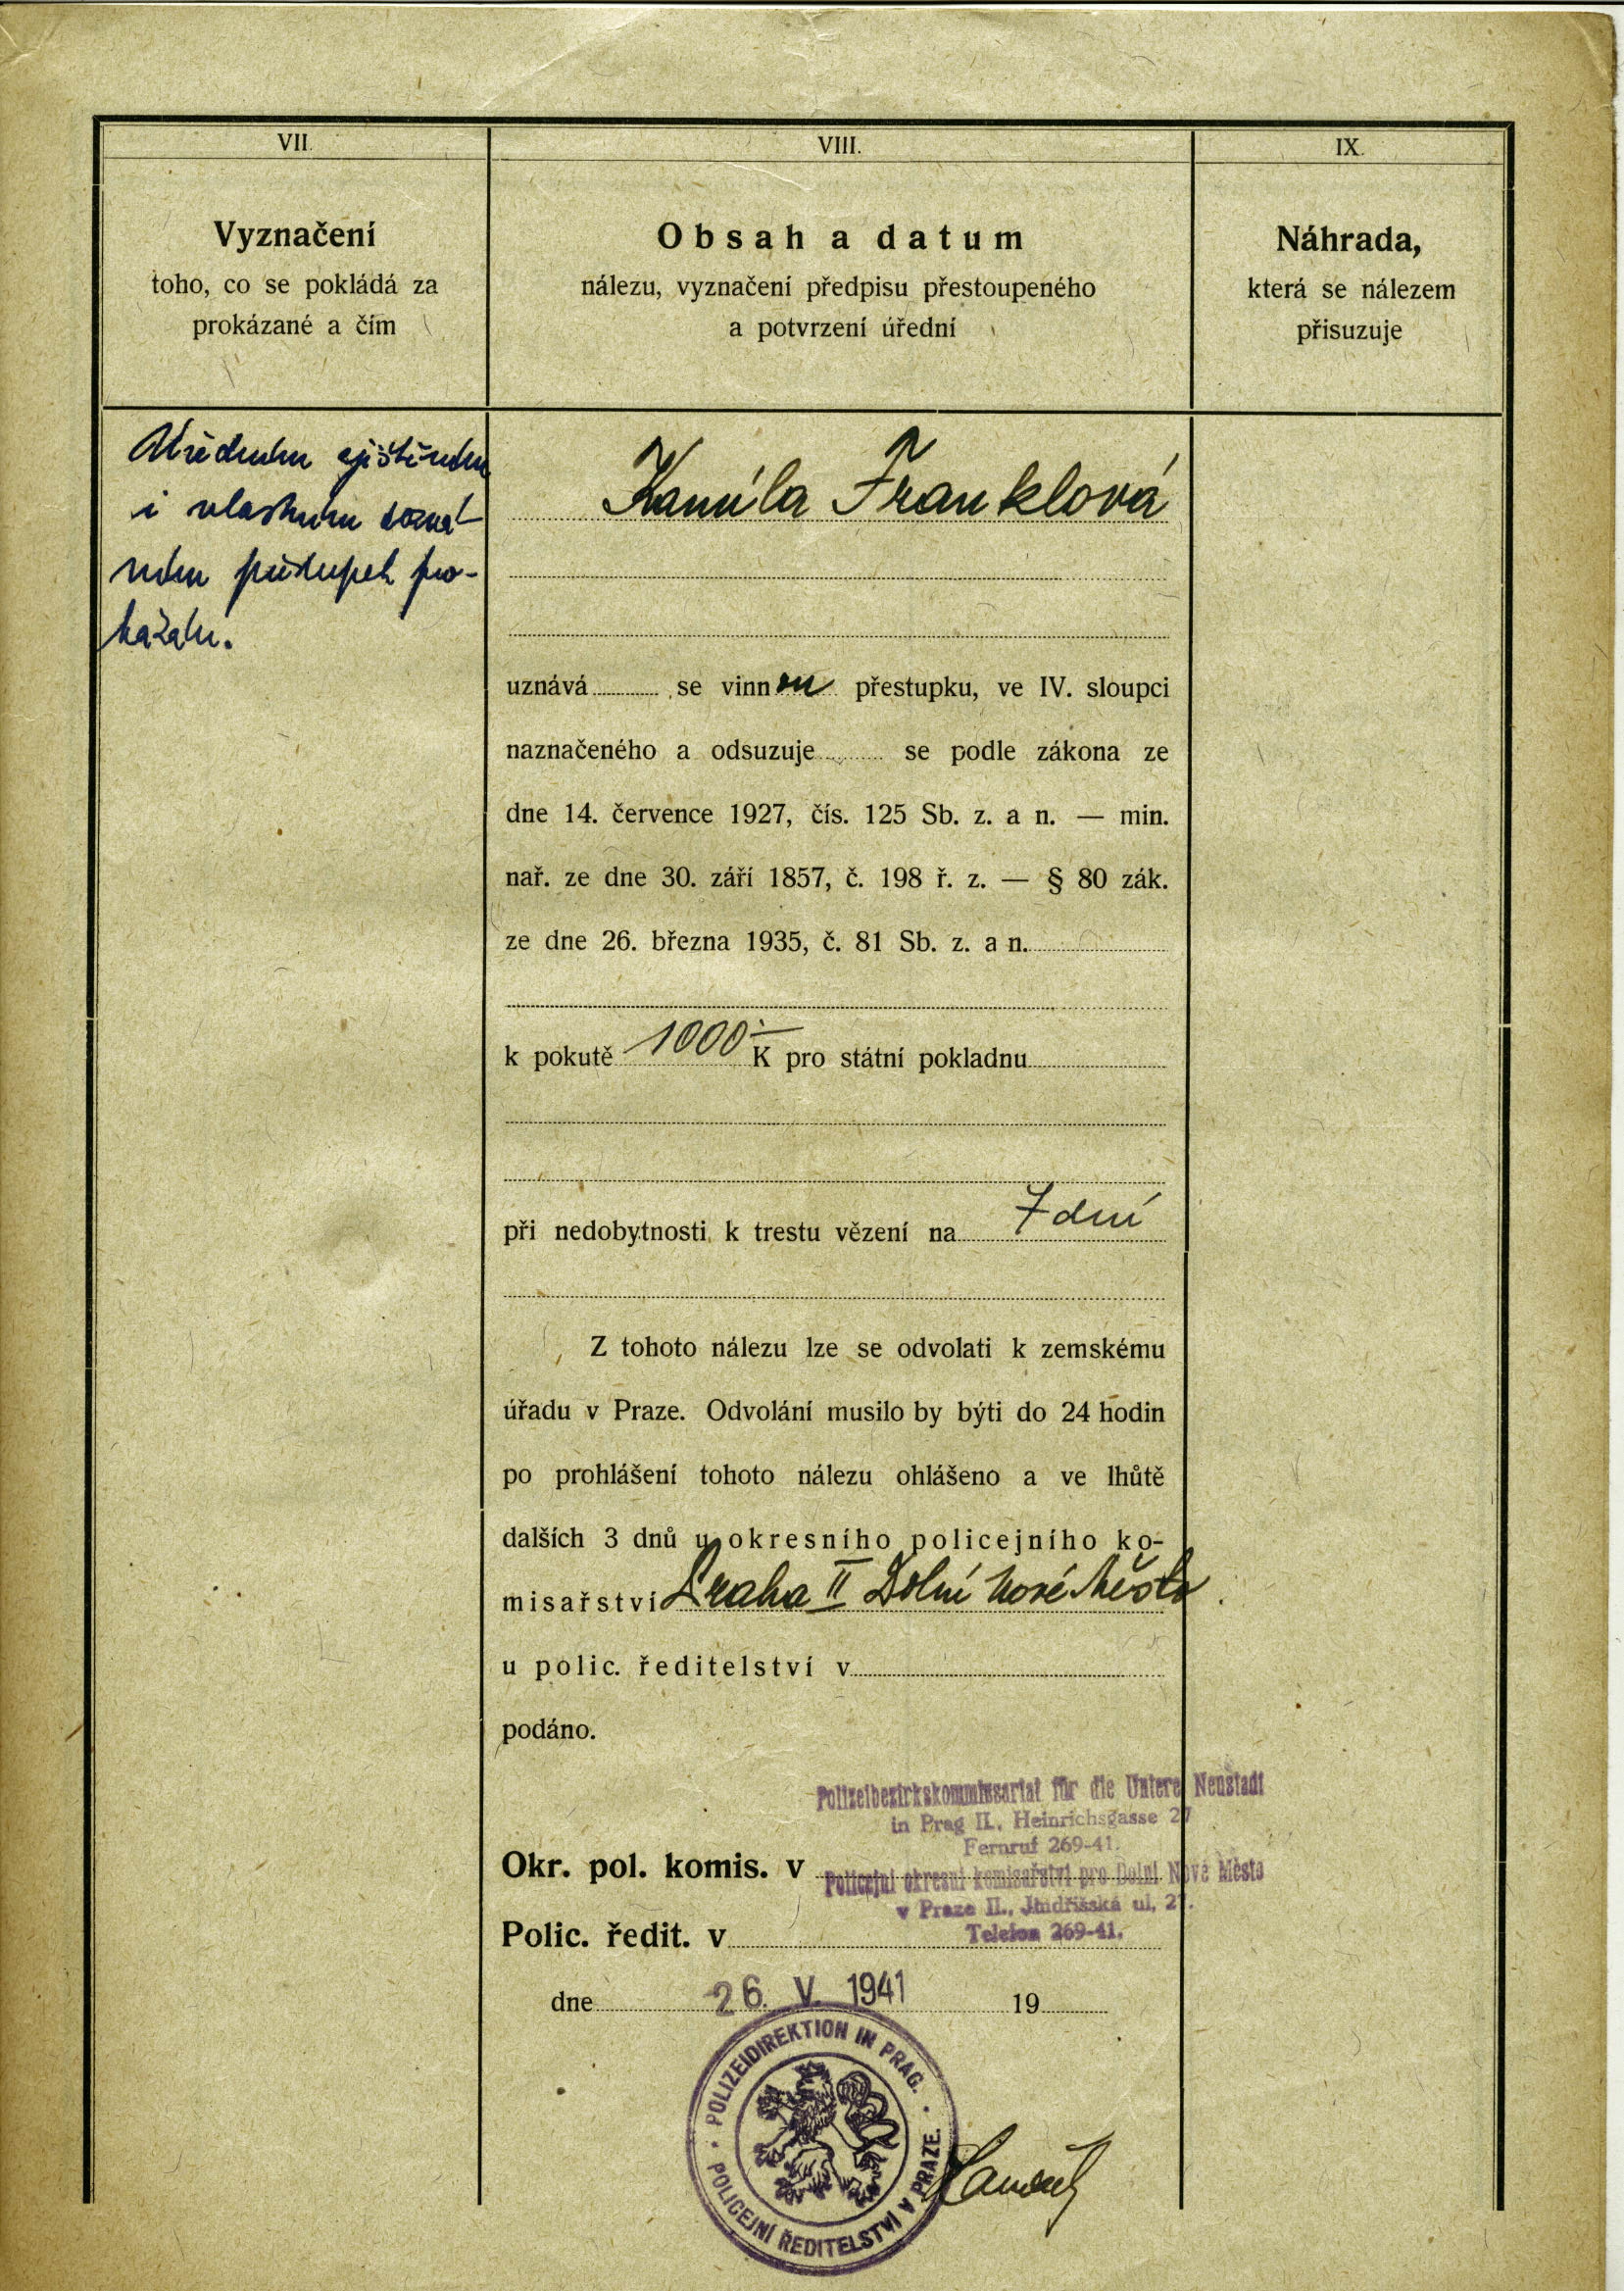 VII.
Vyznačení
toho, co se pokládá za
prokázané a čím
VIII.
Obsah a datum
nálezu, vyznačení předpisu přestoupeného
a potvrzení úřední
IX.
Náhrada,
která se nálezem
přisuzuje
Úředním zjištěním
i vlastním dozná-
ním přestupek pro-
kázán.
Kamila Franklová
uznává se vinnou přestupku, ve IV. sloupci
naznačeného a odsuzuje se podle zákona ze
dne 14. července 1927, čís. 125 Sb. z. a n. — min.
nař. ze dne 30. září 1857, č. 198 ř. z. — § 80 zák.
ze dne 26. března 1935, č. 81 Sb. z. a n.
k pokutě 1000.— K pro státní pokladnu
při nedobytnosti k trestu vězení na 7 dní
Z tohoto nálezu lze se odvolati k zemskému
úřadu v Praze. Odvolání musilo by býti do 24 hodin
po prohlášení tohoto nálezu ohlášeno a ve lhůtě
dalších 3 dnů u okresního policejního ko-
misařství Praha II Dolní Nové Město
u polic. ředitelství v
podáno.
Polizeibezirkskommissariat für die Untere Neustadt
in Prag II., Heinrichsgasse 27
Fernruf 269-41.
Okr. pol. komis. v
Policejní okresní komisařství pro Dolní Nové Město
v Praze II., Jindřišská ul. 27.
Telefon 269-41.
Polic. ředit. v
dne 26. V. 1941 19
POLIZEIDIREKTION IN PRAG.
POLICEJNÍ ŘEDITELSTVÍ V PRAZE.